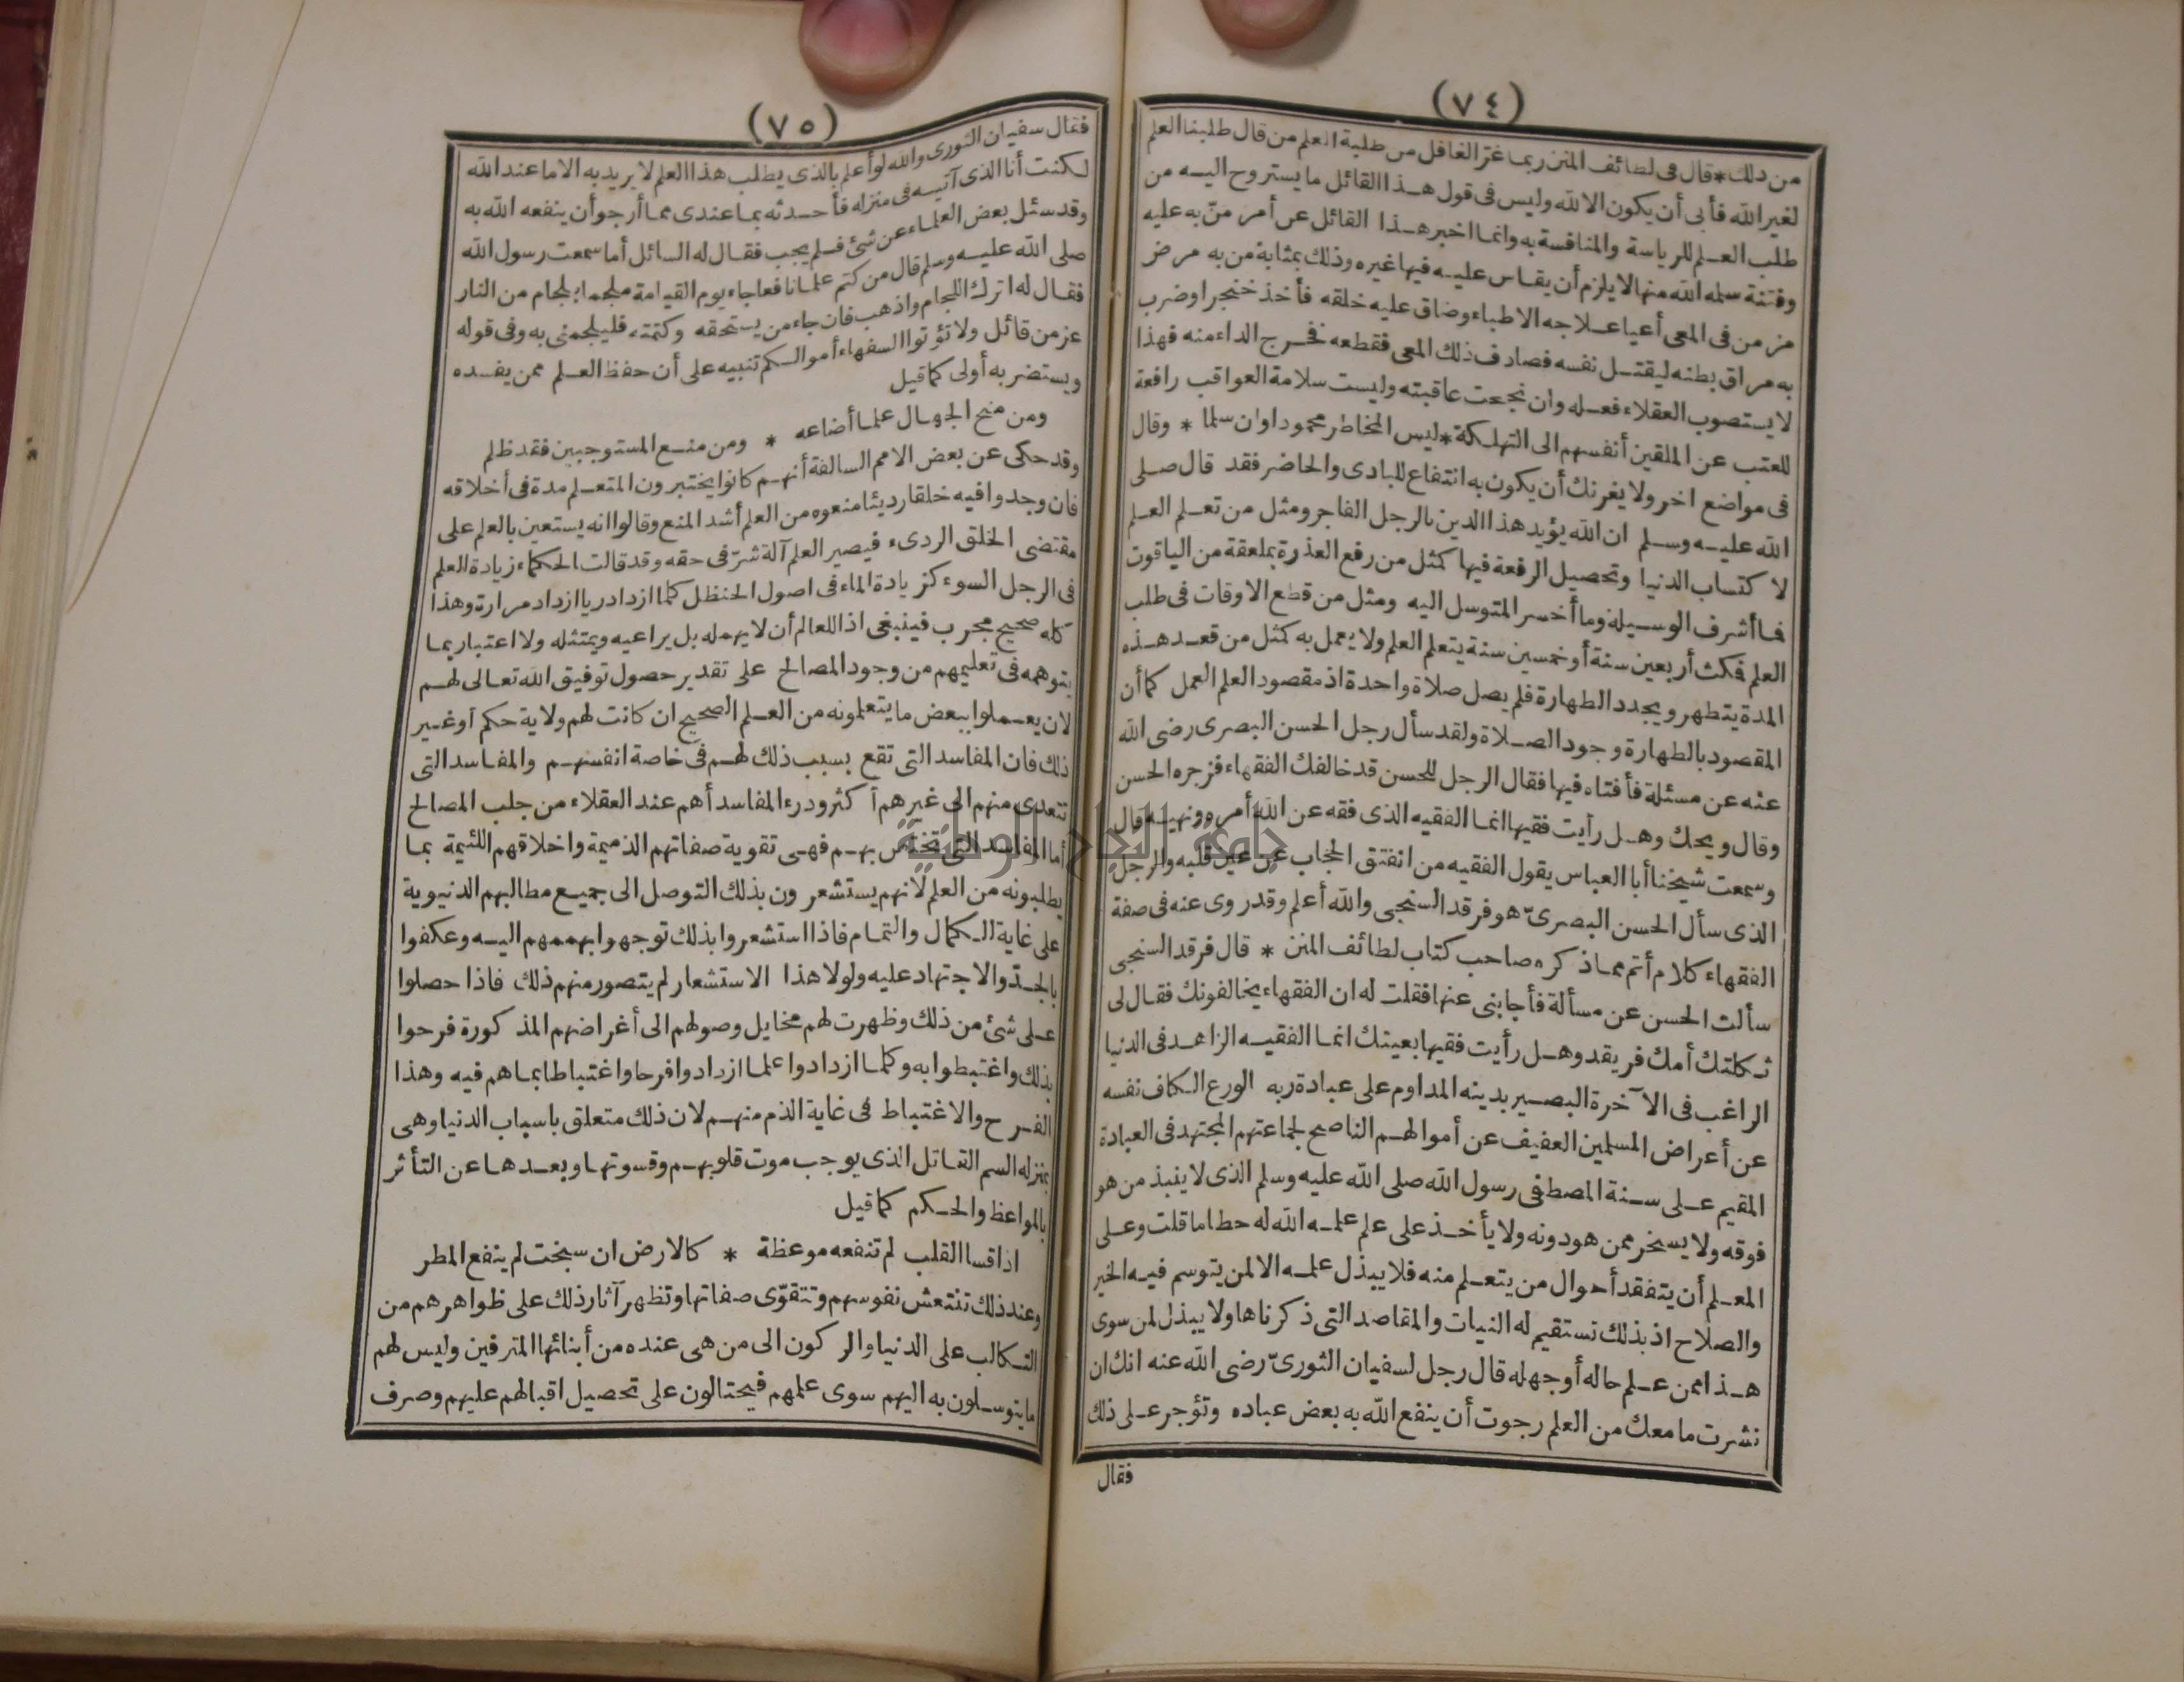 (٧٤)
من ذلك * قال فى لطائف المنن ربما غر الغافل من طلبة العلم من قال طلبنا العلم
لغير الله فأبى أن يكون الا لله وليس فى قول هذا القائل ما يستروح اليه من
طلب العلم للرياسة والمنافسة به وانما اخبر هذا القائل عن أمر منّ به عليه
وفتنة سلمه الله منها لا يلزم أن يقاس عليه فيها غيره وذلك بمثابة من به مرض
مزمن فى المعى أعيا علاجه الاطباء وضاق عليه خلقه فأخذ خنجرا وضرب
به مراق بطنه ليقتل نفسه فصادف ذلك المعى فقطعه فخرج الداء منه فهذا
لا يستصوب العقلاء فعله وان نجحت عاقبته وليست سلامة العواقب رافعة
للعتب عن الملقين أنفسهم الى التهلكة * ليس المخاطر محمودا وان سلما * وقال
فى مواضع اخر ولا يغرنك أن يكون به انتفاع للبادى والحاضر فقد قال صلى
الله عليه وسلم ان الله يؤيد هذا الدين بالرجل الفاجر ومثل من تعلم العلم
لا كتساب الدنيا وتحصيل الرفعة فيها كمثل من رفع العذرة بملعقة من الياقوت
فما أشرف الوسيلة وما أخسر المتوسل اليه ومثل من قطع الاوقات فى طلب
العلم فمكث أربعين سنة أو خمسين سنة يتعلم العلم ولا يعمل به كمثل من قعد هذه
المدة يتطهر ويجدد الطهارة فلم يصل صلاة واحدة اذ مقصود العلم العمل كما أن
المقصود بالطهارة وجود الصلاة ولقد سأل رجل الحسن البصرى رضى الله
عنه عن مسئلة فأفتاه فيها فقال الرجل للحسن قد خالفك الفقهاء فزجره الحسن
وقال ويحك وهل رأيت فقيها انما الفقيه الذى فقه عن الله أمره ونهيه وقال
وسمعت شيخنا أبا العباس يقول الفقيه من انفتق الحجاب عن عين قلبه والرجل
الذى سأل الحسن البصرىّ هو فرقد السنجى والله أعلم وقد روى عنه فى صفة
الفقهاء كلام أتم مما ذكره صاحب كتاب لطائف المنن * قال فرقد السنجى
سألت الحسن عن مسألة فأجابنى عنها فقلت له ان الفقهاء يخالفونك فقال لى
ثكلتك أمك فريقد وهل رأيت فقيها بعينك انما الفقيه الزاهد فى الدنيا
الراغب فى الآخرة البصير بدينه المداوم على عبادة ربه الورع الكاف نفسه
عن أعراض المسلمين العفيف عن أموالهم الناصح لجماعتهم المجتهد فى العبادة
المقيم على سنة المصطفى رسول الله صلى الله عليه وسلم الذى لا ينبذ من هو
فوقه ولا يسخر ممن هو دونه ولا يأخذ على علم علمه الله له حطاما قلت وعلى
المعلم أن يتفقد أحوال من يتعلم منه فلا يبذل علمه الا لمن يتوسم فيه الخير
والصلاح اذ بذلك تستقيم له النيات والمقاصد التى ذكرناها ولا يبذل لمن سوى
هذا ممن علم حاله أو جهله قال رجل لسفيان الثورىّ رضى الله عنه انك ان
نشرت ما معك من العلم رجوت أن ينفع الله به بعض عباده وتؤجر على ذلك
فقال
(٧٥)
فقال سفيان الثورى والله لو أعلم بالذى يطلب هذا العلم لا يريد به الا ما عند الله
لكنت أنا الذى آتيه فى منزله فأحدثه بما عندى مما أرجو أن ينفعه الله به
وقد سئل بعض العلماء عن شئ فلم يجب فقال له السائل أما سمعت رسول الله
صلى الله عليه وسلم قال من كتم علما نافعا جاء يوم القيامة ملجما بلجام من النار
فقال له اترك اللجام واذهب فان جاء من يستحقه وكتمته فليلجمنى به وفى قوله
عز من قائل ولا تؤتوا السفهاء أموالكم تنبيه على أن حفظ العلم ممن يفسده
ويستضر به أولى كما قيل
ومن منح الجهال علما أضاعه * ومن منع المستوجبين فقد ظلم
وقد حكى عن بعض الامم السالفة أنهم كانوا يختبرون المتعلم مدة فى أخلاقه
فان وجدوا فيه خلقا رديئا منعوه من العلم أشد المنع وقالوا انه يستعين بالعلم على
مقتضى الخلق الردىء فيصير العلم آلة شرّ فى حقه وقد قالت الحكماء زيادة العلم
فى الرجل السوء كزيادة الماء فى اصول الحنظل كلما ازداد ريا ازداد مرارة وهذا
كله صحيح مجرب فينبغى اذا للعالم أن لا يهمله بل يراعيه ويمتثله ولا اعتبار بما
يتوهمه فى تعليمهم من وجود المصالح على تقدير حصول توفيق الله تعالى لهم
لان يعملوا ببعض ما يتعلمونه من العلم الصحيح ان كانت لهم ولاية حكم أو غير
ذلك فان المفاسد التى تقع بسبب ذلك لهم فى خاصة انفسهم والمفاسد التى
تتعدى منهم الى غيرهم أكثر ودرء المفاسد أهم عند العقلاء من جلب المصالح
أما المفاسد التى تختص بهم فهى تقوية صفاتهم الذميمة واخلاقهم اللئيمة بما
يطلبونه من العلم لانهم يستشعرون بذلك التوصل الى جميع مطالبهم الدنيوية
على غاية الكمال والتمام فاذا استشعروا بذلك توجهوا بهممهم اليه وعكفوا
بالجدّ والاجتهاد عليه ولولا هذا الاستشعار لم يتصور منهم ذلك فاذا حصلوا
على شئ من ذلك وظهرت لهم مخايل وصولهم الى أغراضهم المذكورة فرحوا
بذلك واغتبطوا به وكلما ازدادوا علما ازدادوا فرحا واغتباطا بما هم فيه وهذا
الفرح والاغتباط فى غاية الذم منهم لان ذلك متعلق باسباب الدنيا وهى
بمنزلة السم القاتل الذى يوجب موت قلوبهم وقسوتها وبعدها عن التأثر
بالمواعظ والحكم كما قيل
اذا قسا القلب لم تنفعه موعظة * كالارض ان سبخت لم ينفع المطر
وعند ذلك تنتعش نفوسهم وتتقوّى صفاتها وتظهر آثار ذلك على ظواهرهم من
التكالب على الدنيا والركون الى من هى عنده من أبنائها المترفين وليس لهم
ما يتوسلون به اليهم سوى علمهم فيحتالون على تحصيل اقبالهم عليهم وصرف
جامعة النجاح الوطنية